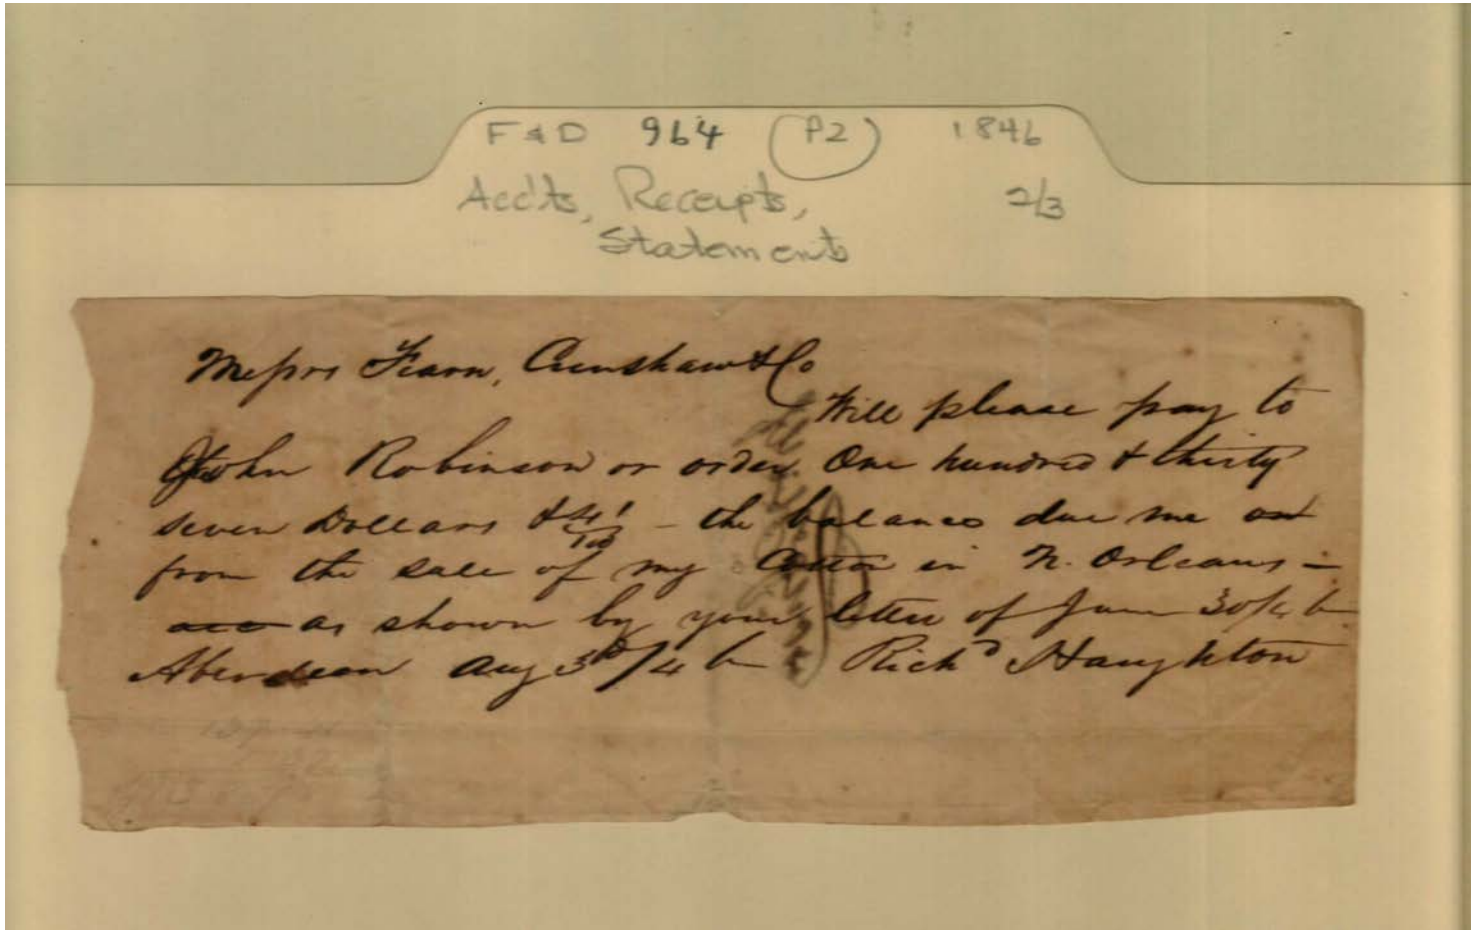 F & D 964 (P2) 1846
Accts, Receipts, 2/3
Statements
Messrs Fearn, Crenshaw & Co
Will please pay to
John Robinson or order One hundred & thirty
seven Dollars & 41/100 – the balance due me on
from the sale of my Cotton in N. Orleans –
as shown by your letter of June 30/46
Aberdeen Aug 3rd/46 Richd Haughton
137